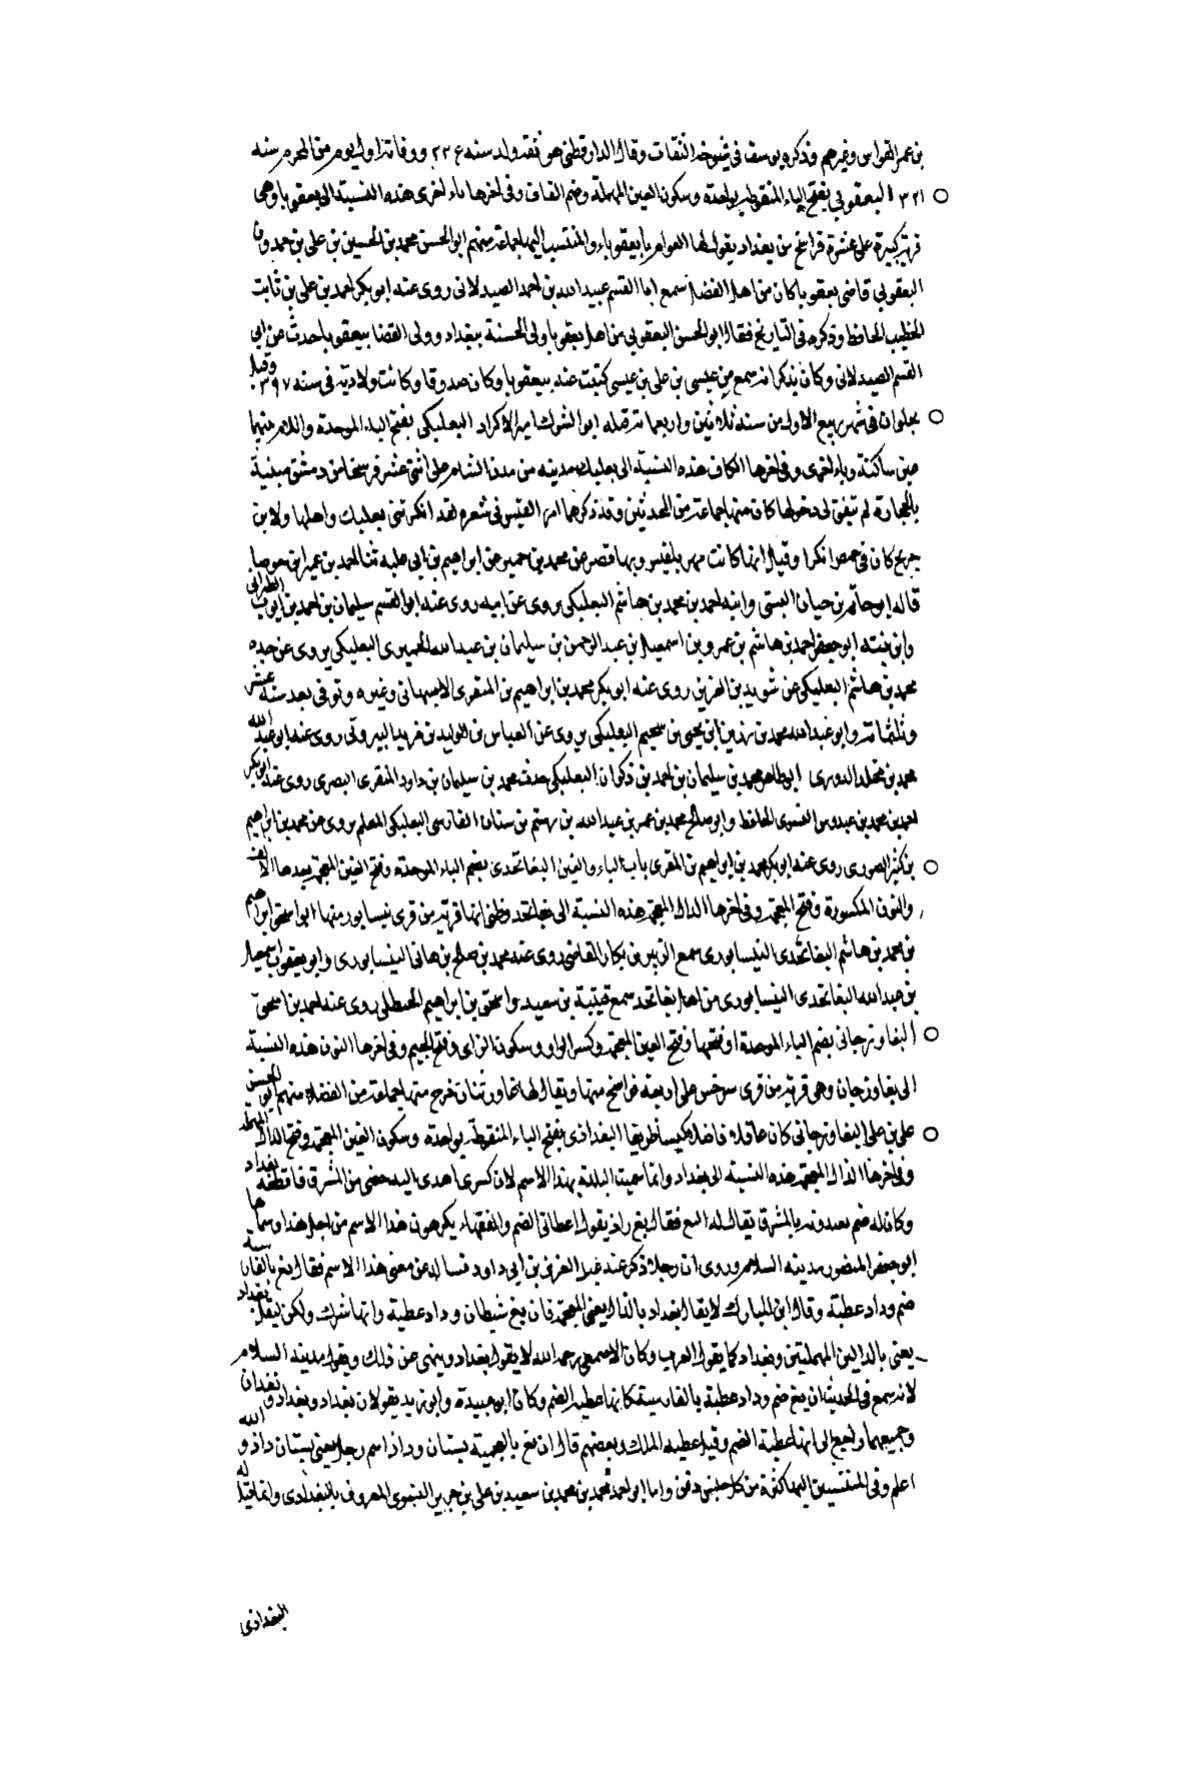 بن عمر القواس وغيرهم وذكره يوسف في شيوخه الثقات وقال الدارقطني هو ثقة ولد سنه ٢٢٤ ووفاته اول يوم من المحرم سنه
٣٢١ البعقوبي بفتح الباء المنقوطه بواحدة وسكون العين المهملة وضم القاف وفي اخرها باء اخرى هذه النسبة الى بعقوبا وهي
قرية كبيرة على عشرة فراسخ من بغداد يقول لها العوام بايعقوباء والمنتسب اليها جماعة منهم ابو الحسن محمد بن الحسين بن علي بن حمدون
البعقوبي قاضي بعقوبا كان من اهل الفضل سمع ابا القسم عبيد الله بن احمد الصيدلاني روى عنه ابو بكر احمد بن علي بن ثابت
الخطيب الحافظ وذكره في التاريخ فقال ابو الحسن البعقوبي من اهل بعقوبا ولي الحسبة ببغداد وولي القضا ببعقوبا حدث عن ابي
القسم الصيدلاني وكان يذكر انه سمع من عيسى بن علي بن عيسى كتبت عنه ببعقوبا وكان صدوقا وكانت ولادته في سنه ٣٩٧ وقتل
بحلوان في شهر ربيع الاول من سنة ثلاثين واربعمائة قتله ابو الشوك امير الاكراد البعلبكي بفتح الباء الموحدة واللام بينهما
عين ساكنة وباء اخرى وفي اخرها الكاف هذه النسبة الى بعلبك مدينه من مدن الشام على اثني عشر فرسخا من دمشق مبنية
بالحجارة لم يتفق لي دخولها كان منها جماعة من المحدثين وقد ذكرها امرؤ القيس في شعره لقد انكرتني بعلبك واهلها ولابن
جريج كان في حمص انكرا وقيل انها كانت مهر بلقيس وبها قصر عن محمد بن حمير عن ابراهيم بن ابي عبله ثنا احمد بن عمير ابن جوصا
قاله ابو حاتم بن حبان البستي وابنه احمد بن محمد بن هاشم البعلبكي يروي عن ابيه روى عنه ابو القسم سليمان بن احمد بن ايوب الطبراني
وابن بنته ابو جعفر احمد بن هاشم بن عمرو بن اسمعيل بن عبد الرحمن بن سليمان بن عبد الله الحميري البعلبكي يروي عن جده
محمد بن هاشم البعلبكي عن سويد بن العزيز روى عنه ابو بكر محمد بن ابراهيم بن المقرى الاصبهاني وغيره وتوفي بعد سنة عشر
وثلثمائة وابو عبد الله محمد بن رزين ابن يحيى بن سحيم البعلبكي يروي عن العباس بن الوليد بن مزيد البيروتي روى عنه ابو عبد الله
محمد بن مخلد الدوري ابو طاهر محمد بن سليمان بن احمد بن ذكوان البعلبكي حدث محمد بن سليمان بن داود المنقري البصري روى عنه ابو بكر
احمد بن محمد بن عبدوس النسوى الحافظ وابو صالح محمد بن عمر بن عبد الله بن رستم بن سنان الفارسي البعلبكي المعلم يروي عن محمد بن ابراهيم
بن كثير الصوري روى عنه ابو بكر محمد بن ابراهيم بن المقرى باب الباء والغين البغانخذي بضم الباء الموحدة وفتح الغين المعجمة بعدها الالف
والنون المكسورة وفتح المعجمة وفي اخرها الذال المعجمة هذه النسبة الى بغانخذ وظني انها قرية من قرى نيسابور منها ابو اسحق ابراهيم
بن محمد بن هاشم البغانخذي النيسابوري سمع الزبير بن بكار القاضي روى عنه محمد بن صالح بن هاني النيسابوري وابو يعقوب اسمعيل
بن عبد الله البغانخذي النيسابوري من اهل بغانخذ سمع قتيبة بن سعيد واسحق بن ابراهيم الحنظلي روى عنه احمد بن اسحق
البغاوزجاني بضم الباء الموحدة او فتحها وفتح الغين المعجمة وكسر الواو وسكون الزاى وفتح الجيم وفي اخرها النون هذه النسبة
الى بغاوزجان وهي قرية من قرى سرخس على اربعة فراسخ منها ويقال لها غاوزنان خرج منها جماعة من الفضلاء منهم ابو الحسن
علي بن علي البغاوزجاني كان عاقلا فاضلا كيسا ظريفا البغداذي بفتح الباء المنقوطة بواحدة وسكون الغين المعجمة وفتح الدال المهملة
وفي اخرها الذال المعجمة هذه النسبة الى بغداد وانما سميت البلدة بهذا الاسم لان كسرى اهدى اليه خصي من المشرق فاقطعه بغداد
وكان له صنم يعبدونه بالمشرق يقال له البغ فقال بغ داد يقول اعطاني الصنم والفقهاء يكرهون هذا الاسم من اجل هذا وسماها
ابو جعفر المنصور مدينة السلام وروى ان رجلا ذكر عند عبد العزيز بن ابي داود فسأله عن معنى هذا الاسم فقال بغ بالفارسية
صنم وداد عطيته وقال ابن المبارك لا يقال بغداذ بالذال يعني المعجمة فان بغ شيطان وداد عطية وانها شرك ولكن ليقل بغداد
يعني بالدالين المهملتين وبغداد كما يقول العرب وكان الاصمعي رحمه الله لا يقول بغداد وينهى عن ذلك ويقول مدينه السلام
لانه سمع في الحديث ان بغ صنم وداد عطية بالفارسية كانها عطية الصنم وكان ابو عبيدة وابو زيد يقولان بغداد وبغداذ وبغدان
وجميعها راجع الى انها عطية الصنم وقيل عطيه الملك وبعضهم قال ان بغ بالعجمية بستان وداذ اسم رجل يعني بستان داذ والله
اعلم وفي المنتسبين اليها كثرة من كل جنس وفن واما ابو احمد محمد بن محمد بن سعيد بن علي بن جرير النسوي المعروف بالبغدادي وانما قيل له
البغدادي